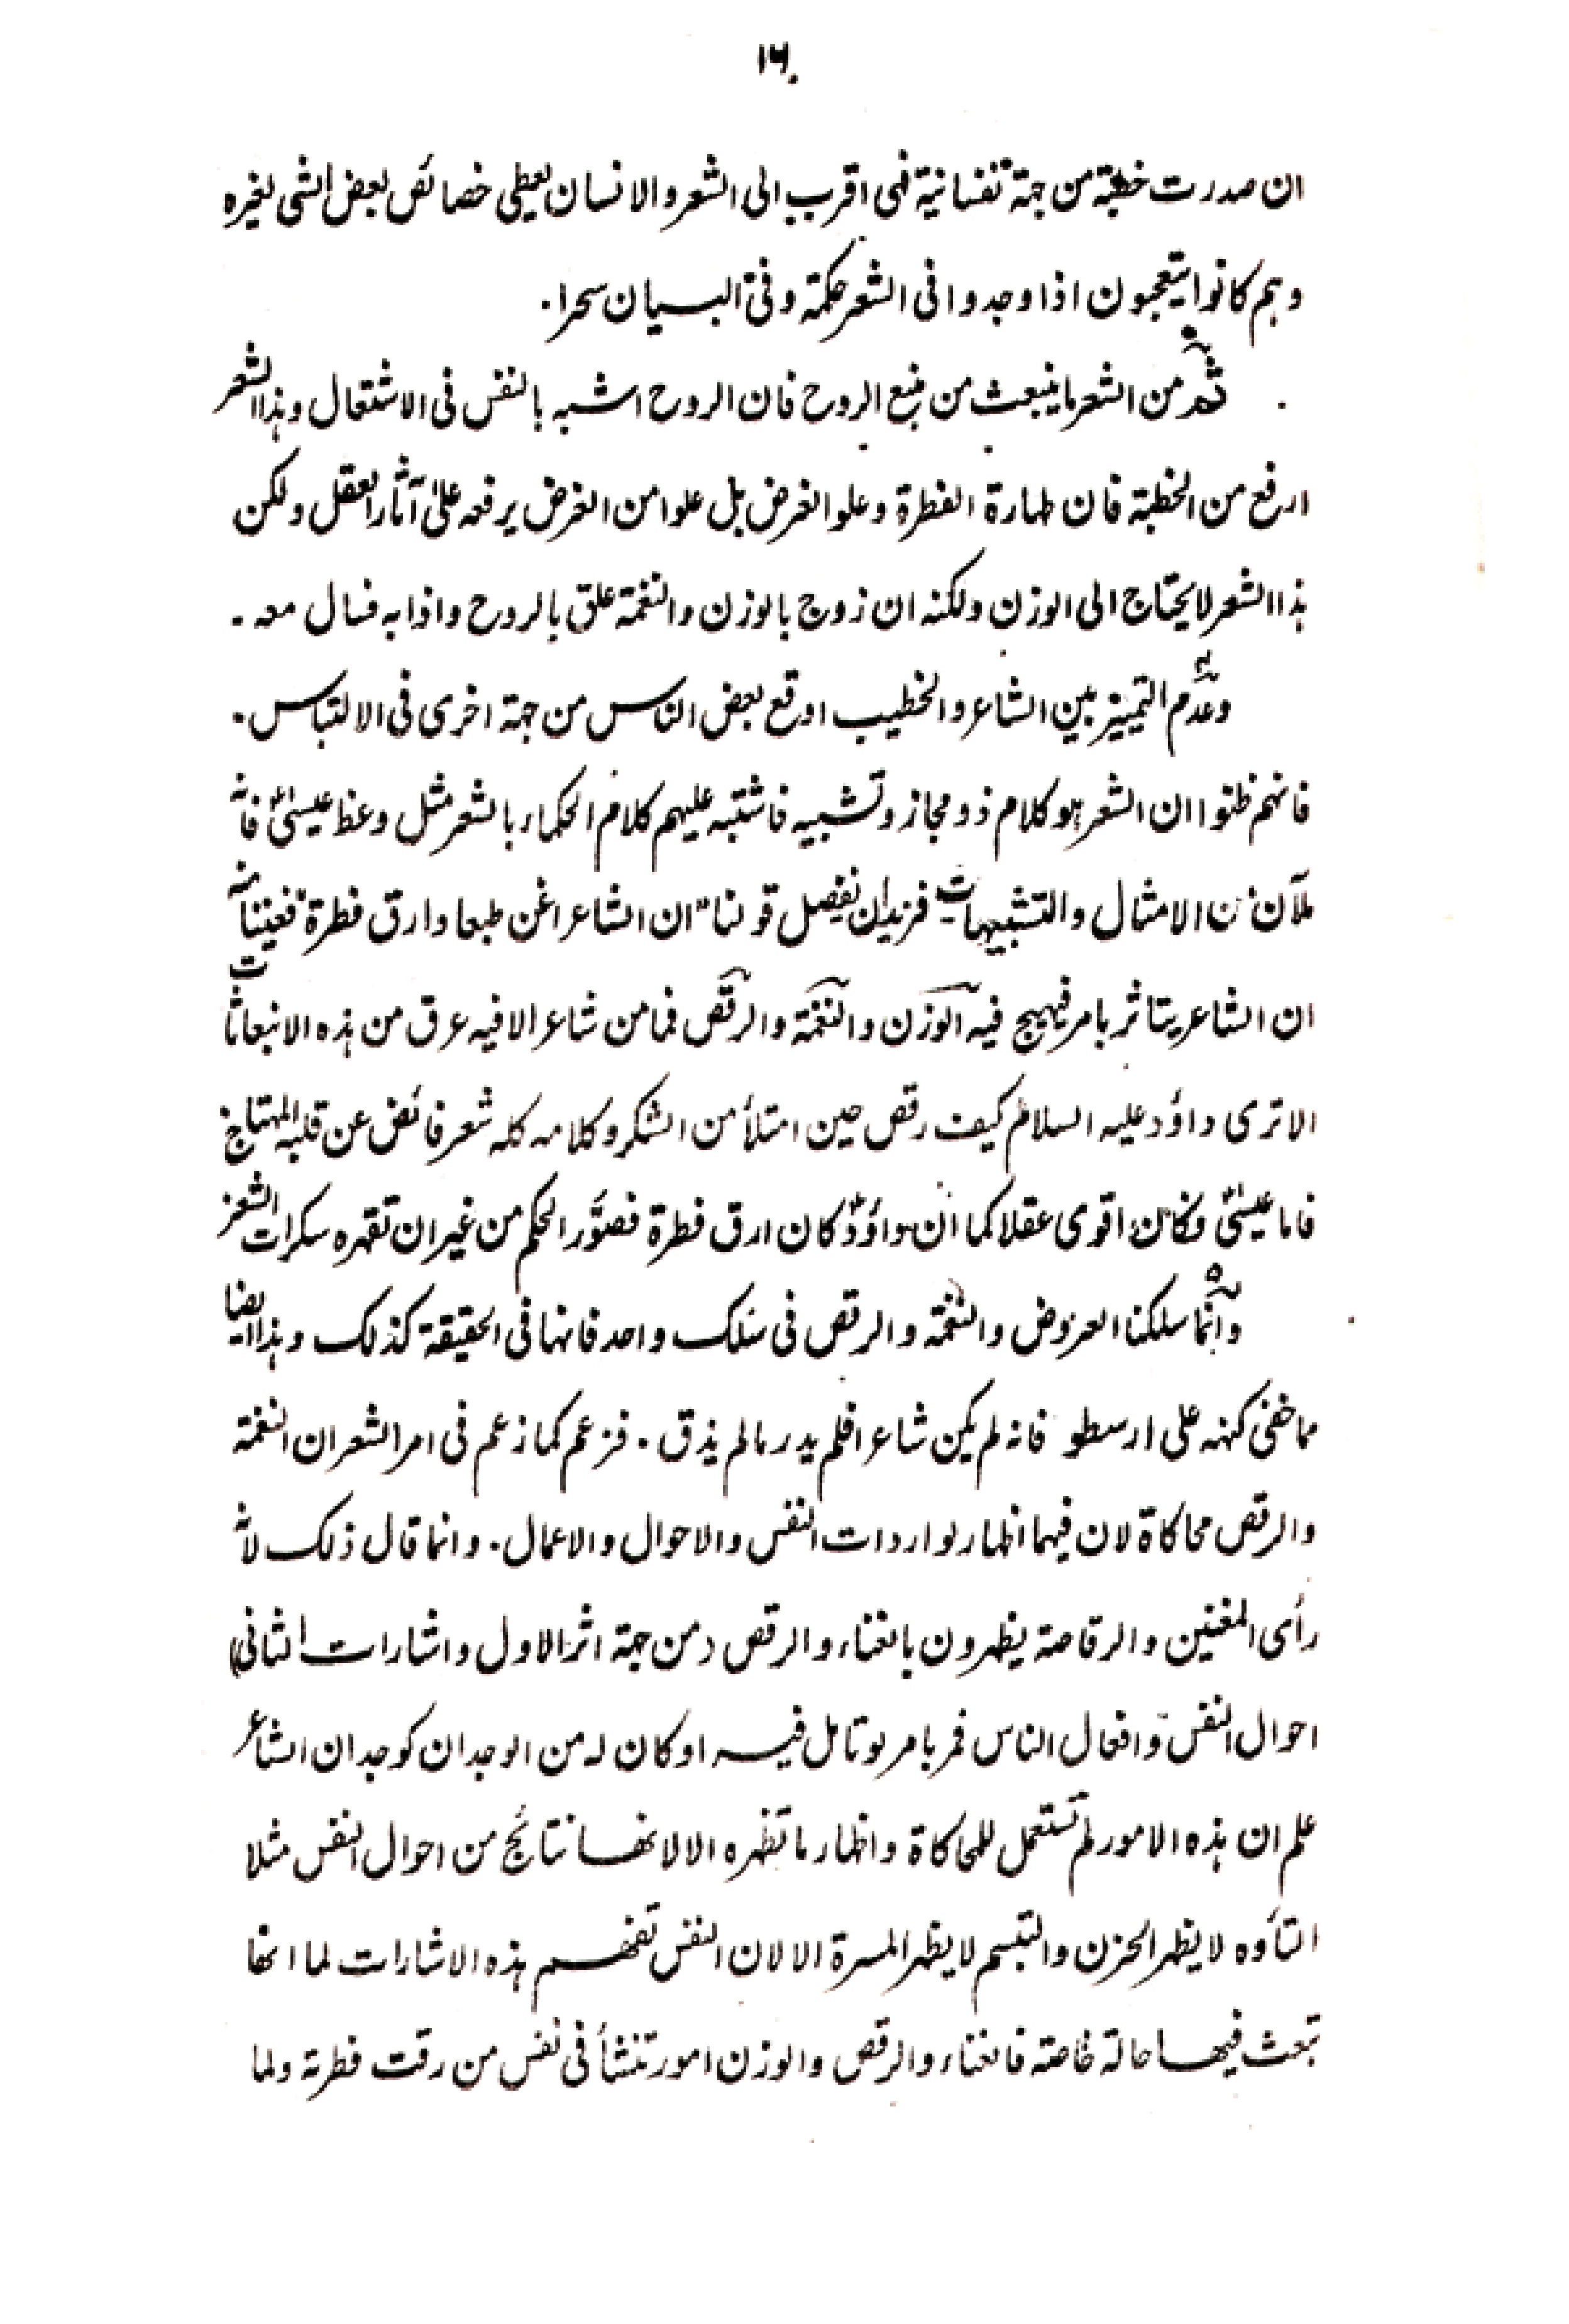 ١٦
ان صدرت خطبة من جهة نفسانية فهى اقرب الى الشعر والانسان يعطى خصائص بعض الشى لغيره
وهم كانوا يتعجبون اذا وجدوا فى الشعر حكمة وفى البيان سحرا.
ثم من الشعر ما ينبعث من منبع الروح فان الروح اشبه بالنفس فى الاشتعال وهذا الشعر
ارفع من الخطبة فان طهارة الفطرة وعلو الغرض بل علوا من الغرض يرفعه على آثار العقل ولكن
هذا الشعر لا يحتاج الى الوزن ولكنه ان زوج بالوزن والنغمة علق بالروح واذا به فسال معه.
وعدم التمييز بين الشاعر والخطيب اوقع بعض الناس من جهة اخرى فى الالتباس.
فانهم ظنوا ان الشعر هو كلام ذو مجاز وتشبيه فاشتبه عليهم كلام الحكماء بالشعر مثل وعظ عيسىٰؑ فانه
ملآن من الامثال والتشبيهات فنريد ان نفصل قولنا "ان الشاعر اغن طبعا وارق فطرة" فعنينا منه
ان الشاعر يتاثر بامر فيهيج فيه الوزن والنغمة والرقص فما من شاعر الا فيه عرق من هذه الانبعاثات
الا ترى داؤد عليه السلام كيف رقص حين امتلأ من الشكر وكلامه كله شعر فائض عن قلبه المهتاج
فاما عيسىٰؑ فكان اقوى عقلا كما ان داؤدؑ كان ارق فطرة فصور الحكم من غير ان تقهره سكرات الشعر
وانما سلكنا العروض والنغمة والرقص فى سلك واحد فانها فى الحقيقة كذلك وهذا ايضا
مما خفى كنهه على ارسطو فانه لم يكن شاعرا فلم يدر ما لم يذق. فزعم كما زعم فى امر الشعر ان النغمة
والرقص محاكاة لان فيهما اظهار لواردات النفس والاحوال والاعمال. وانما قال ذلك لانه
رأى المغنين والرقاصة يظهرون بالغناء والرقص (من جهة اثر الاول واشارات الثانى)
احوال النفس وافعال الناس فمر بامر لو تامل فيه او كان له من الوجدان كوجدان الشاعر
علم ان هذه الامور لم تستعمل للمحاكاة واظهار ما تظهره الا لانها نتائج من احوال النفس مثلا
التأوه لا يظهر الحزن والتبسم لا يظهر المسرة الا لان النفس تفهم هذه الاشارات لما انها
تبعث فيها حالة خاصة فالغناء والرقص والوزن امور تنشأ فى نفس من رقت فطرته ولما